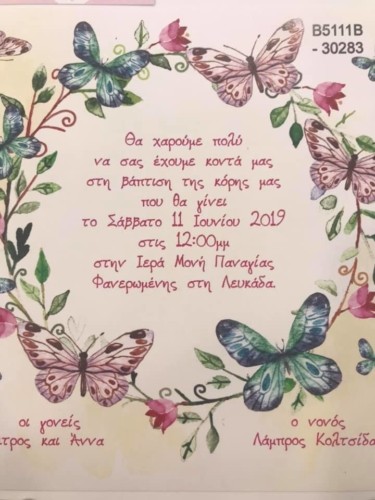 B5111B
- 30283
Θα χαρούμε πολύ
να σας έχουμε κοντά μας
στη βάπτιση της κόρης μας
που θα γίνει
το Σάββατο 11 Ιουνίου 2019
στις 12:00μμ
στην Ιερά Μονή Παναγίας
Φανερωμένης στη Λευκάδα.
οι γονείς
και Άννα
ο νονός
Λάμπρος